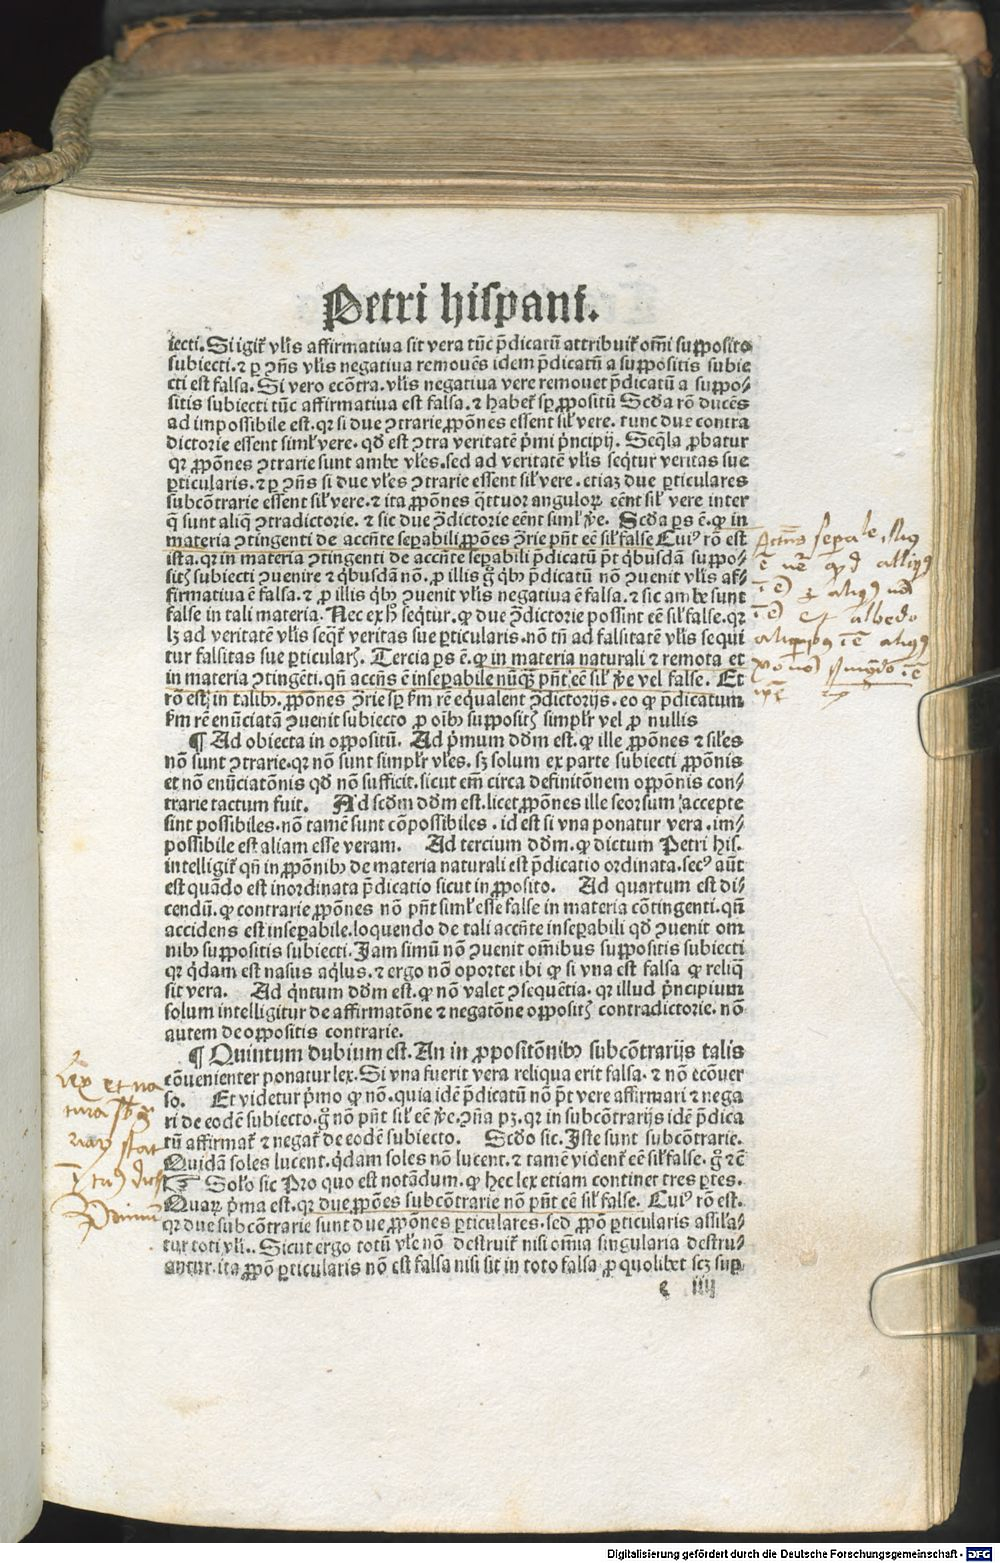 Petri hispani.
iecti. Si igit̃ vl̃is affirmatiua sit vera tũc p̃dicatũ attribuit̃ om̃i supposito
subiecti. ⁊ ꝑ ꝯñs vl̃is negatiua remouẽs idem p̃dicatũ a suppositis subie
cti est falsa. Si vero ecõtra. vl̃is negatiua vere remouet p̃dicatũ a suppo⸗
sitis subiecti tũc affirmatiua est falsa. ⁊ habet̃ sꝑ ꝓpositũ Scd̃a rõ ducẽs
ad impossibile est. qꝛ si due ꝯtrarie ꝓpõnes essent sil̃ vere. tunc due contra
dictorie essent siml̃ vere. qd̃ est ꝯtra veritatẽ p̃mi p̃ncipij. Seq̃la ꝓbatur
qꝛ ꝓpõnes ꝯtrarie sunt ambe vl̃es. sed ad veritatẽ vl̃is seq̃tur veritas sue
ꝑticularis. ⁊ ꝑ ꝯñs si due vl̃es ꝯtrarie essent sil̃ vere. etiaꝫ due ꝑticulares
subcõtrarie essent sil̃ vere. ⁊ ita ꝓpõnes q̃ttuor anguloꝝ eẽnt sil̃ vere inter
q̃ sunt aliq̃ ꝯtradictorie. ⁊ sic due ꝯ̃dictorie eẽnt siml̃ ṽe. Scd̃a ꝑs ẽ. ꝙ in
materia ꝯtingenti de accñte seꝑabili ꝓpões ꝯ̃rie pñt eẽ sil̃ false Cui⁹ rõ est
ista. qꝛ in materia ꝯtingenti de accñte seꝑabili p̃dicatũ p̃t q̃busdã suppo⸗
sitꝭ subiecti ꝯuenire ⁊ q̃busdã nõ. ꝓ illis g̃ qⁱbꝫ p̃dicatũ nõ ꝯuenit vl̃is af⸗
firmatiua ẽ falsa. ⁊ ꝓ illis qⁱbꝫ ꝯuenit vl̃is negatiua ẽ falsa. ⁊ sic ambe sunt
false in tali materia. Nec ex h̃ seq̃tur. ꝙ due ꝯ̃dictorie possint eẽ sil̃ false. qꝛ
lꝫ ad veritatẽ vl̃is seqt̃ veritas sue ꝑticularis. nõ tñ ad falsitatẽ vl̃is sequi
tur falsitas sue ꝑticularꝭ. Tercia ꝑs ẽ. ꝙ in materia naturali ⁊ remota et
in materia ꝯtingẽti. qñ accñs ẽ inseꝑabile nũq̃ꝫ pñt eẽ sil̃ ṽe vel false. Et
rõ est. qꝛ in talibꝫ. ꝓpõnes ꝯ̃rie sꝑ ẜm rẽ equalent ꝯ̃dictorijs. eo ꝙ p̃dicatum
ẜm rẽ enũciatã ꝯuenit subiecto ꝓ oĩbꝫ suppositꝭ simplr̃ vel ꝓ nullis
¶ Ad obiecta in oppositũ. Ad p̃mum dõm est. ꝙ ille ꝓpõnes ⁊ siles
nõ sunt ꝯtrarie. qꝛ nõ sunt simplr̃ vl̃es. sꝫ solum ex parte subiecti ꝓpõnis
et nõ enũciatõnis qd̃ nõ sufficit. sicut em̃ circa definitõnem oppõnis con⸗
trarie tactum fuit. Ad scd̃m dõm est. licet ꝓpõnes ille seorsum accepte
sint possibiles. nõ tamẽ sunt cõpossibiles. id est si vna ponatur vera. im⸗
possibile est aliam esse veram. Ad tercium dõm. ꝙ dictum Petri his.
intelligit̃ qñ in ꝓpõnibꝫ de materia naturali est p̃dicatio ordinata. sec⁹ aũt
est quãdo est inordinata p̃dicatio sicut in ꝓposito. Ad quartum est di⸗
cendũ. ꝙ contrarie ꝓpõnes nõ pñt siml̃ esse false in materia cõtingenti. qñ
accidens est inseꝑabile. loquendo de tali accñte inseꝑabili qd̃ ꝯuenit om
nibꝫ suppositis subiecti. Jam simũ nõ ꝯuenit om̃ibus suppositis subiecti
qꝛ q̃dam est nasus aq̃lus. ⁊ ergo nõ oportet ibi ꝙ si vna est falsa ꝙ reliq̃
sit vera. Ad q̃ntum dõm est. ꝙ nõ valet ꝯsequẽtia. qꝛ illud p̃ncipium
solum intelligitur de affirmatõne ⁊ negatõne oppositꝭ contradictorie. nõ
autem de oppositis contrarie.
¶ Quintum dubium est. An in ꝓpositõnibꝫ subcõtrarijs talis
cõuenienter ponatur lex. Si vna fuerit vera reliqua erit falsa. ⁊ nõ ecõuer
so. Et videtur p̃mo ꝙ nõ. quia idẽ p̃dicatũ nõ p̃t vere affirmari ⁊ nega
ri de eodẽ subiecto. g̃ nõ pñt sil̃ eẽ ṽe. ꝯña pꝫ. qꝛ in subcõtrarijs idẽ p̃dica
tũ affirmat̃ ⁊ negat̃ de eodẽ subiecto. Scd̃o sic. Iste sunt subcõtrarie.
Quidã soles lucent. q̃dam soles nõ lucent. ⁊ tamẽ vident̃ eẽ sil̃ false. g̃ ⁊c̃
Sol̃o sic Pro quo est notãdum. ꝙ hec lex etiam continet tres ꝑtes.
Quaꝝ p̃ma est. qꝛ due ꝓpões subcõtrarie nõ pñt eẽ sil̃ false. Cui⁹ rõ est.
qꝛ due subcõtrarie sunt due ꝓpõnes ꝑticulares. sed ꝓpõ ꝑticularis assil̃a⸗
tur toti vl̃i. Sicut ergo totũ vl̃e nõ destruit̃ nisi om̃ia singularia destru⸗
antur. ita ꝓpõ ꝑticularis nõ est falsa nisi sit in toto falsa ꝓ quolibet scꝫ sup
e iiij
Lex et na
tura
Digitalisierung gefördert durch die Deutsche Forschungsgemeinschaft - DFG